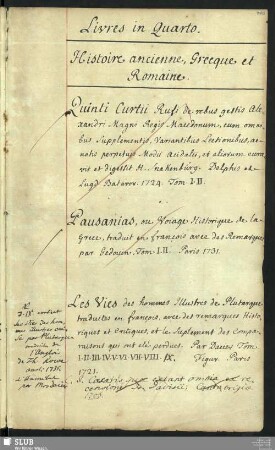 Livres in Quarto.
Histoire ancienne, Grecque et
Romaine.
Quinti Curtii Rufi de rebus gestis Ale
xandri Magni Regis Macedonum, cum om
bus Supplementis, Variantibus Lectionibus, ac
notis perpetuis Modii Acidalii, et aliorum
vit et digessit H. Snakenburg. Delphis et
Lugd Batavor. 1724. Tom I-II.
Pausanias, ou Voiage Historique de la
Grece, traduit en françois avec des Remarques
par Gedouin. Tom I.II. Paris 1731.
Les Vies des hommes Illustres de Plutarque
traduites en françois, avec des remarques Histo,
riques et Critiques, et le Suplement des Compa,
raisons qui ont eté perdues. Par Dacier Tom
I-II-III-IV-V-VI-VII-VIII-IX. Figur. Paris
1721.
J. Caesaris quae extant omnia ex re
censione Davisii, Cantabrigiae
T. IX contient
les Vies des hom,
mes Illustres
par Plutarque
traduites de
l'Anglois
de Th. Rowe
SLUB
Wir führen Wissen.